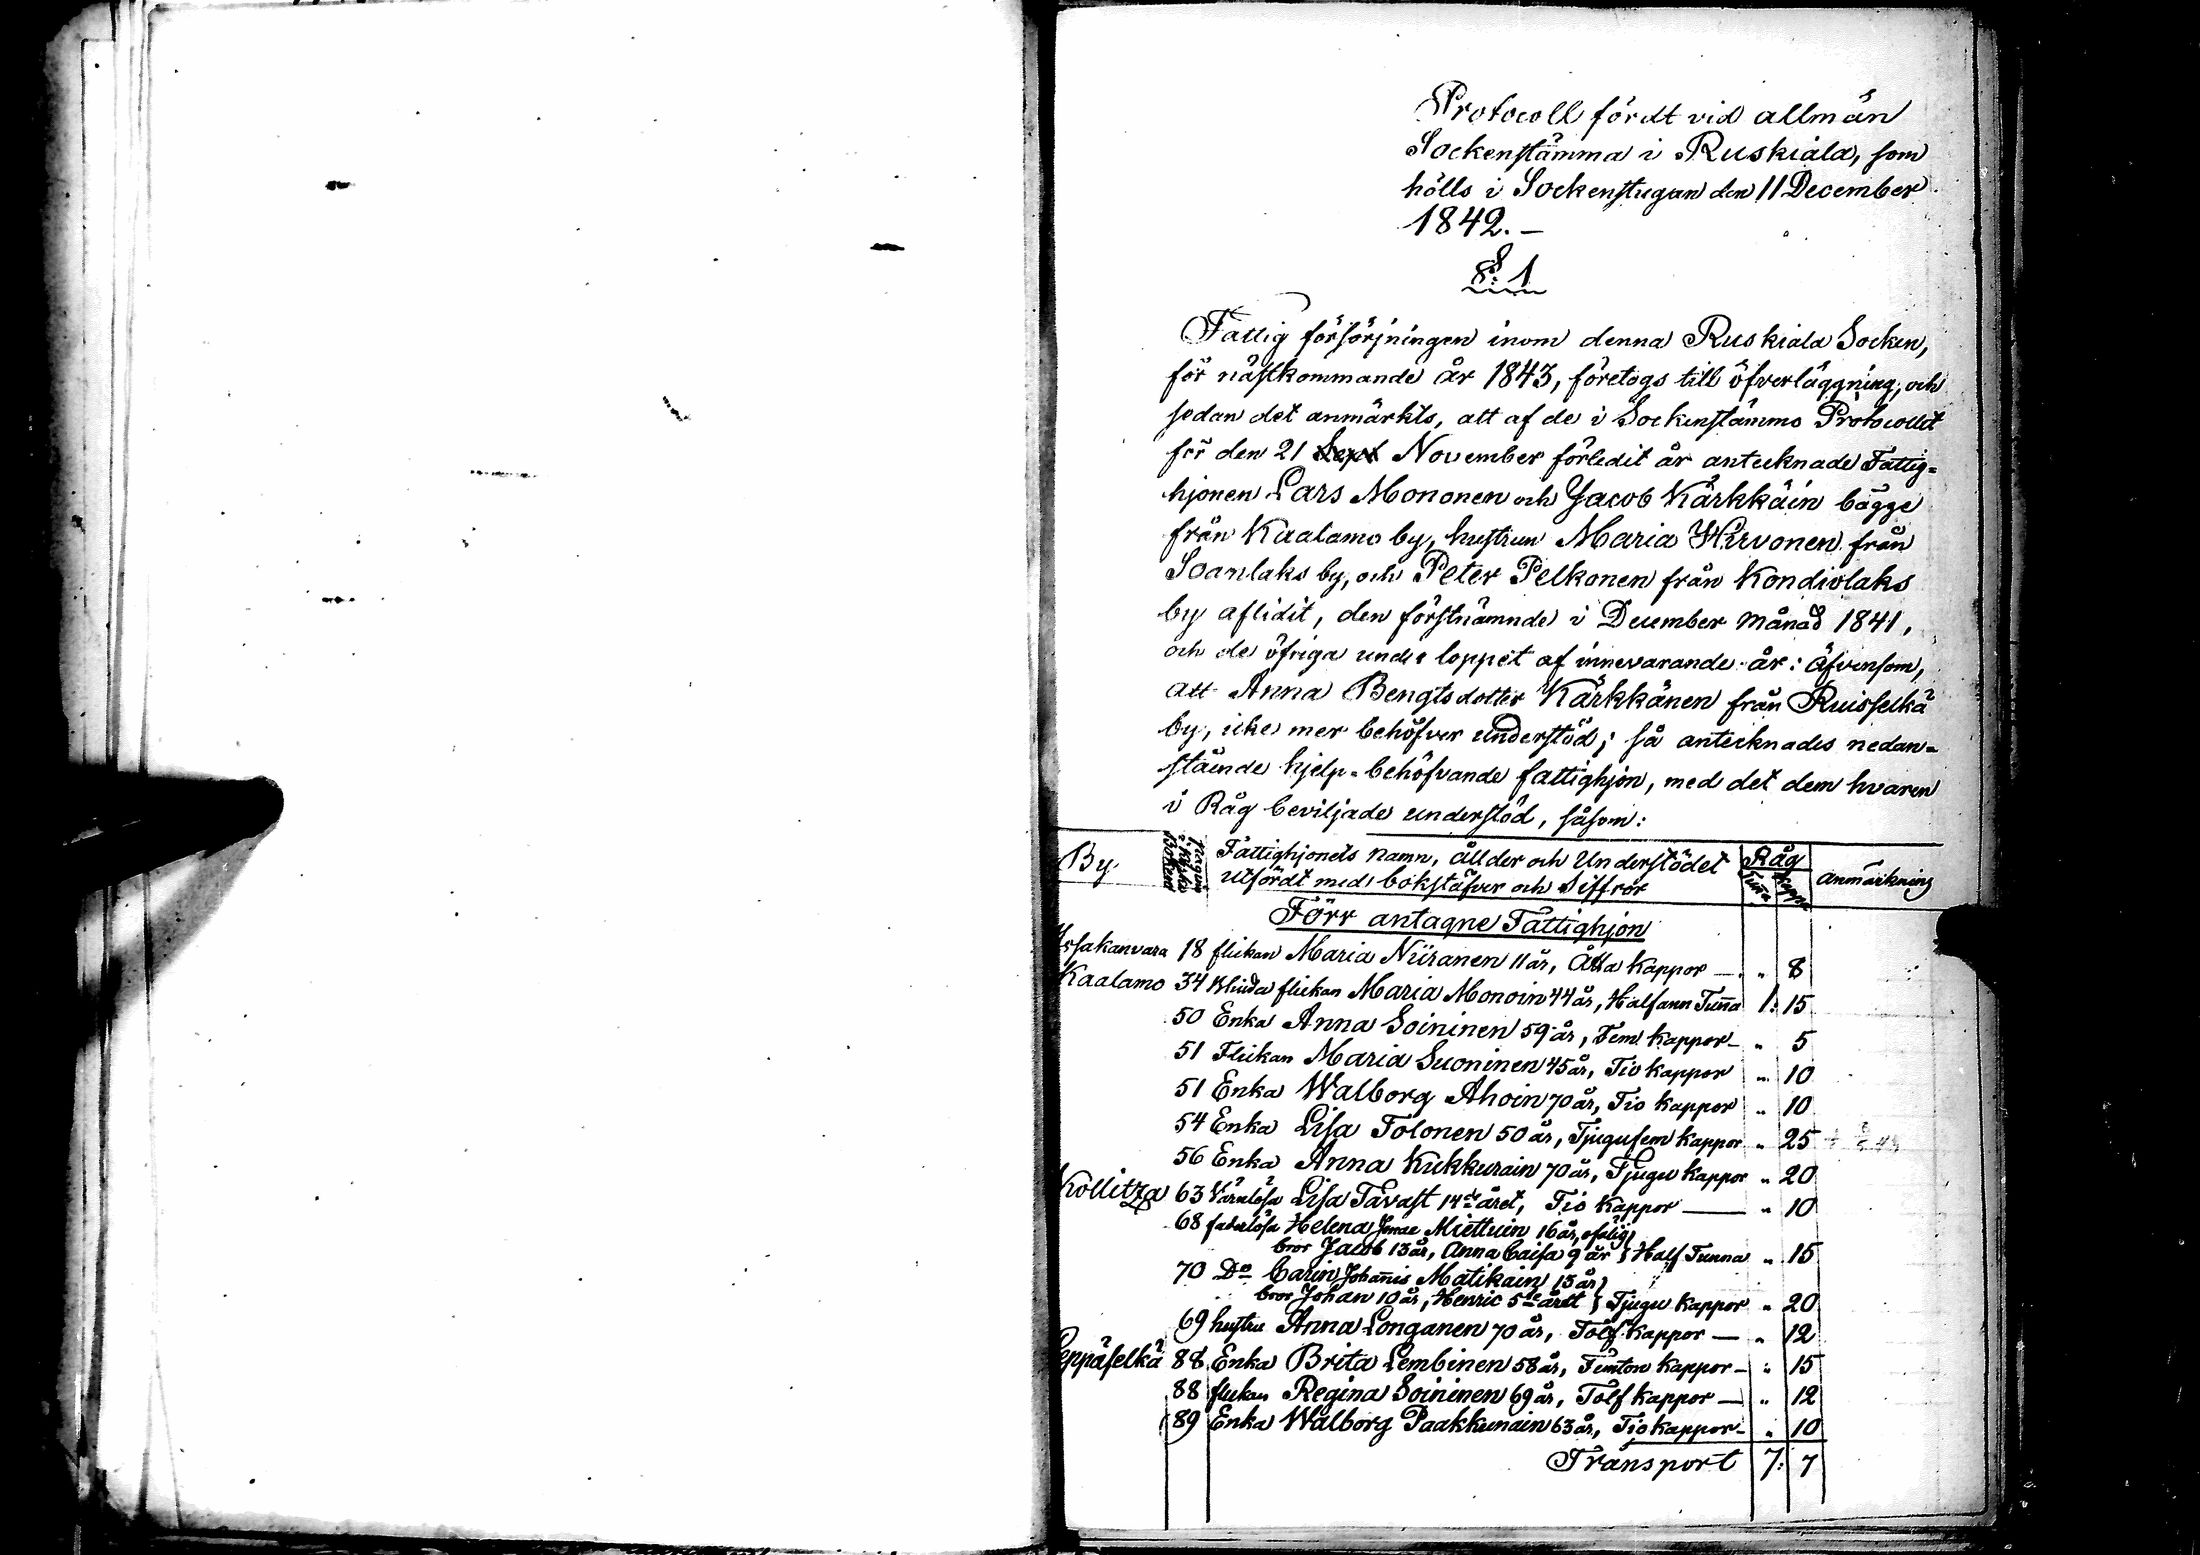 Protocoll fördt vid allmän
Sockenstämma i Ruskiala, som
hölls i Sockenstugan den 11 December
1842.—
§: 1
Fattig försörjningen inom denna Ruskiala Socken,
för nästkommande år 1843, företogs till öfverläggning, och
sedan det anmärkts, att af de i Sockenstämmo Protocollet
för den 21 Sept November förledit år antecknade Fattig=
hjonen Lars Mononen och Jacob Kärkkäin bägge
från Kaalamo by, hustrun Maria Hirvonen från
Soanlaks by, och Peter Pelkonen från Kondiolaks
by aflidit, den förstnämnde i December månad 1841,
och de öfriga under loppet af innevarande år: äfvensom,
att Anna Bengtsdotter Kärkkänen från Ruisselkä
by, icke mer behöfver understöd; så antecknades nedan=
stående hjelp=behöfvande fattighjon, med det dem hvaren
i Råg beviljade understöd, såsom:
By pagina i Kyrko Boken Fattighjonets namn, ållder och Understödet Råg anmärkning
utfördt med bokstäfver och Siffror Tunna Kappar
Förr antagne Fattighjon
Issakanvara 18 flickan Maria Niiranen 11 år, Åtta Kappor — " 8
Kaalamo 34 Blinda flickan Maria Monoin 44 år, Halfann Tunna 1: 15
50 Enka Anna Soininen 59 år, Fem Kappor — " 5
51 Flickan Maria Suoninen 45 år, Tio Kappor " 10
51 Enka Walborg Ahoin 70 år, Tio Kappor " 10
54 Enka Lisa Tolonen 50 år, Tjugufem Kappor " 25
56 Enka Anna Kukkurain 70 år, Tjugu Kappor " 20
Kollitza 63 Värnlösa Lisa Tavast 14de året, Tio Kappor — " 10
68 faderlösa Helena Miettuin 16 år,
bror Jacob 13 år, Anna Caisa 9 år } Half Tunna " 15
70 Do Carin Johanis Matikain 13 år }
bror Johan 10 år, Henric 5te året } Tjugu Kappor " 20
69 hustru Anna Longanen 70 år, Tolf Kappor — " 12
Leppäselkä 88 Enka Brita Lembinen 58 år, Femton Kappor — " 15
88 flickan Regina Soininen 69 år, Tolf Kappor — " 12
89 Enka Walborg Paakkunain 63 år, Tio Kappor — " 10
Transport 7: 7